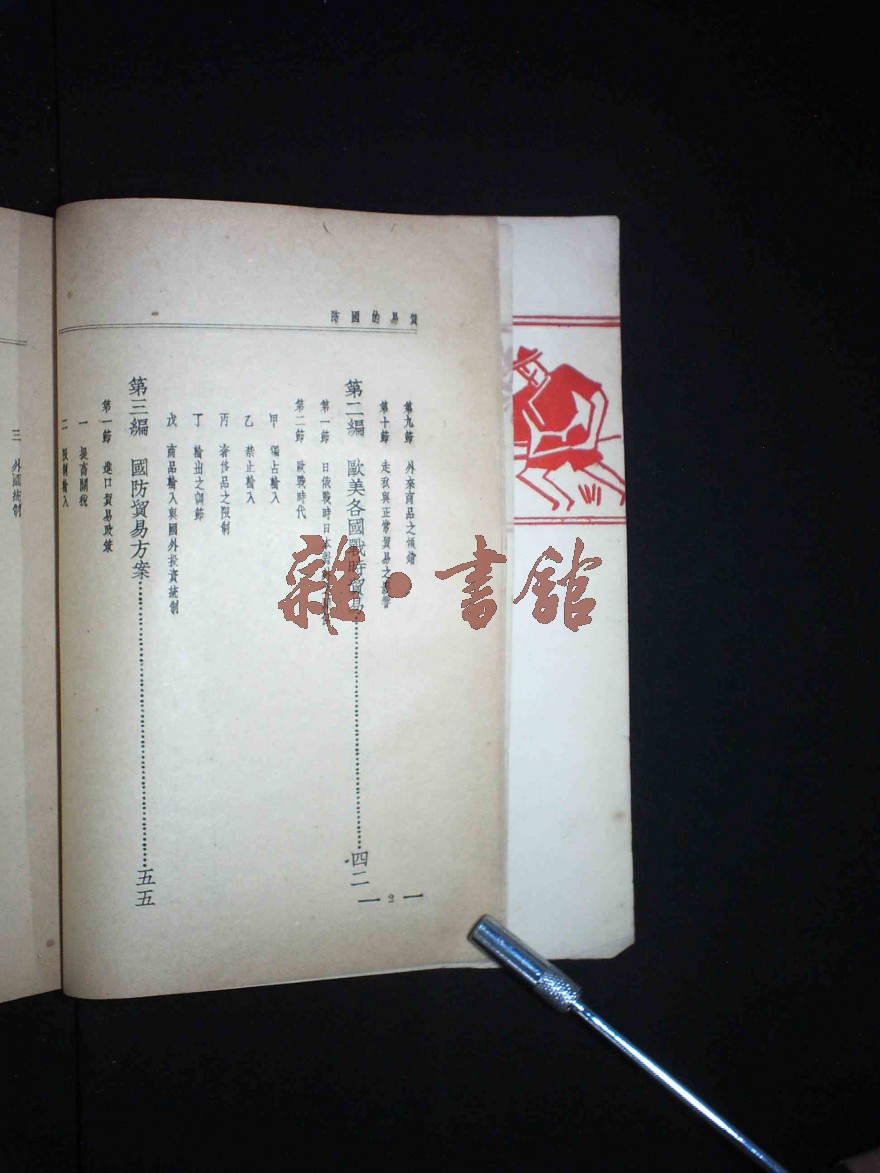 防國的易貿
第九節 外來商品之傾銷
第十節 走私與正常貿易之影響
第二編 歐美各國戰時貿易 四二
第一節 日俄戰時日本
第二節 歐戰時代
甲 獨占輸入
乙 禁止輸入
丙 奢侈品之限制
丁 輸出之調節
戊 商品輸入與國外投資統制
第三編 國防貿易方案 五五
第一節 進口貿易政策
一 提高關稅
二 限制輸入
2
三 外匯統制
雜·書館